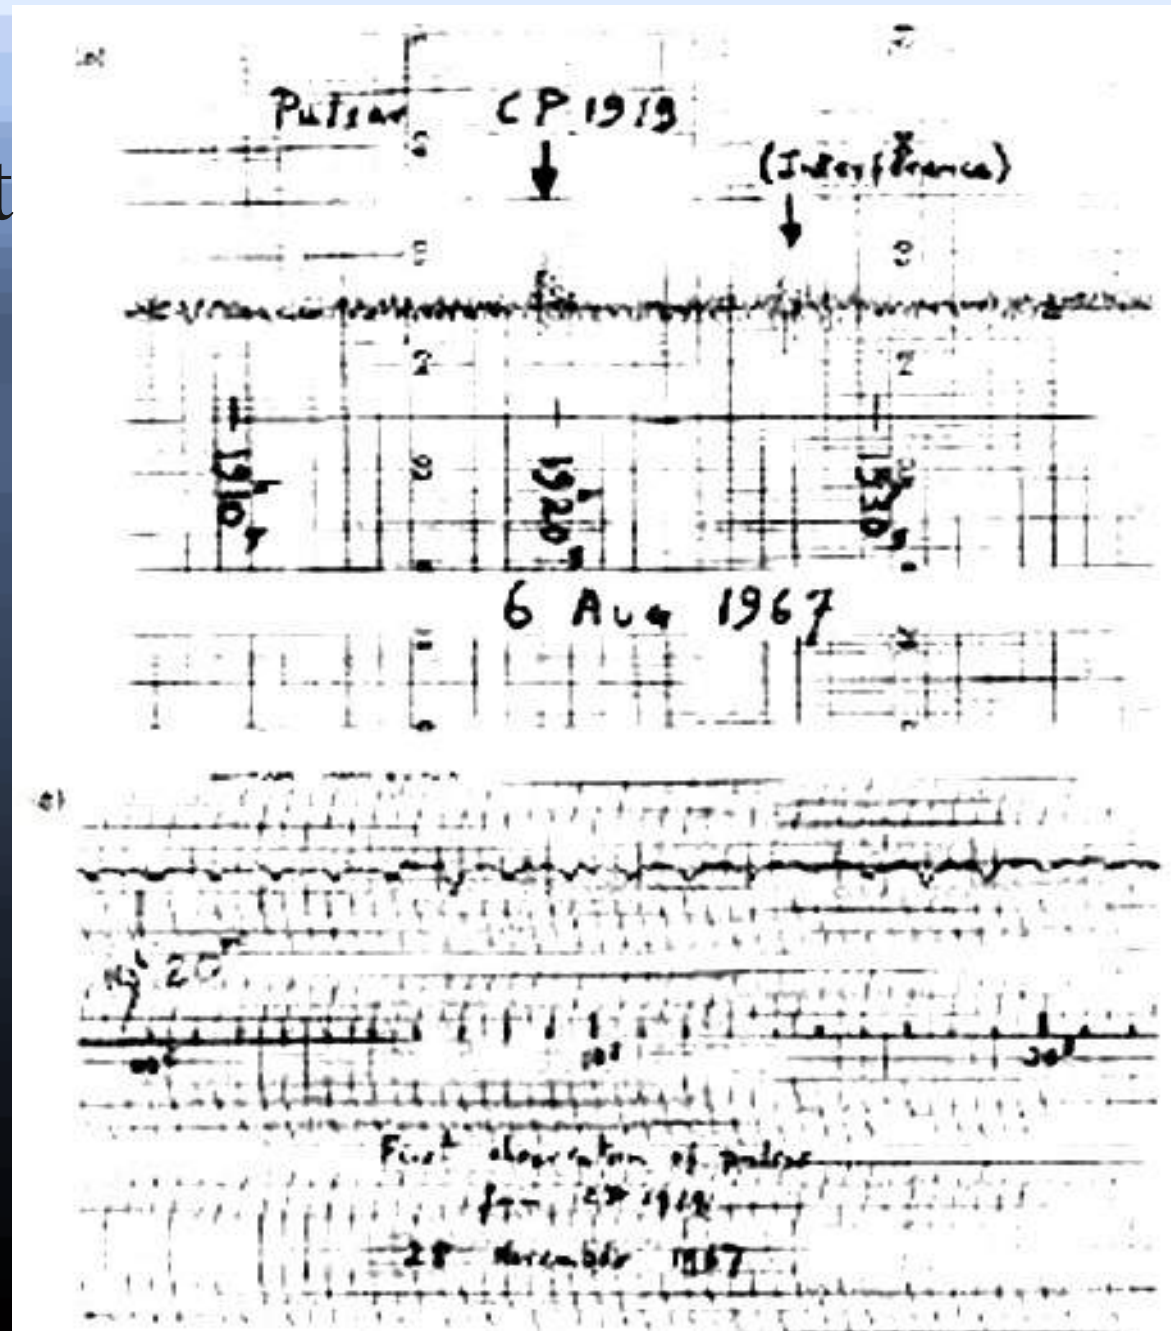 t
(a)
Pulsar CP 1919
(Interference)
1910
1920
1930
6 Aug 1967
20ᵐ
10ˢ
20ˢ
First observation of pulses
from CP 1919
28 November 1967